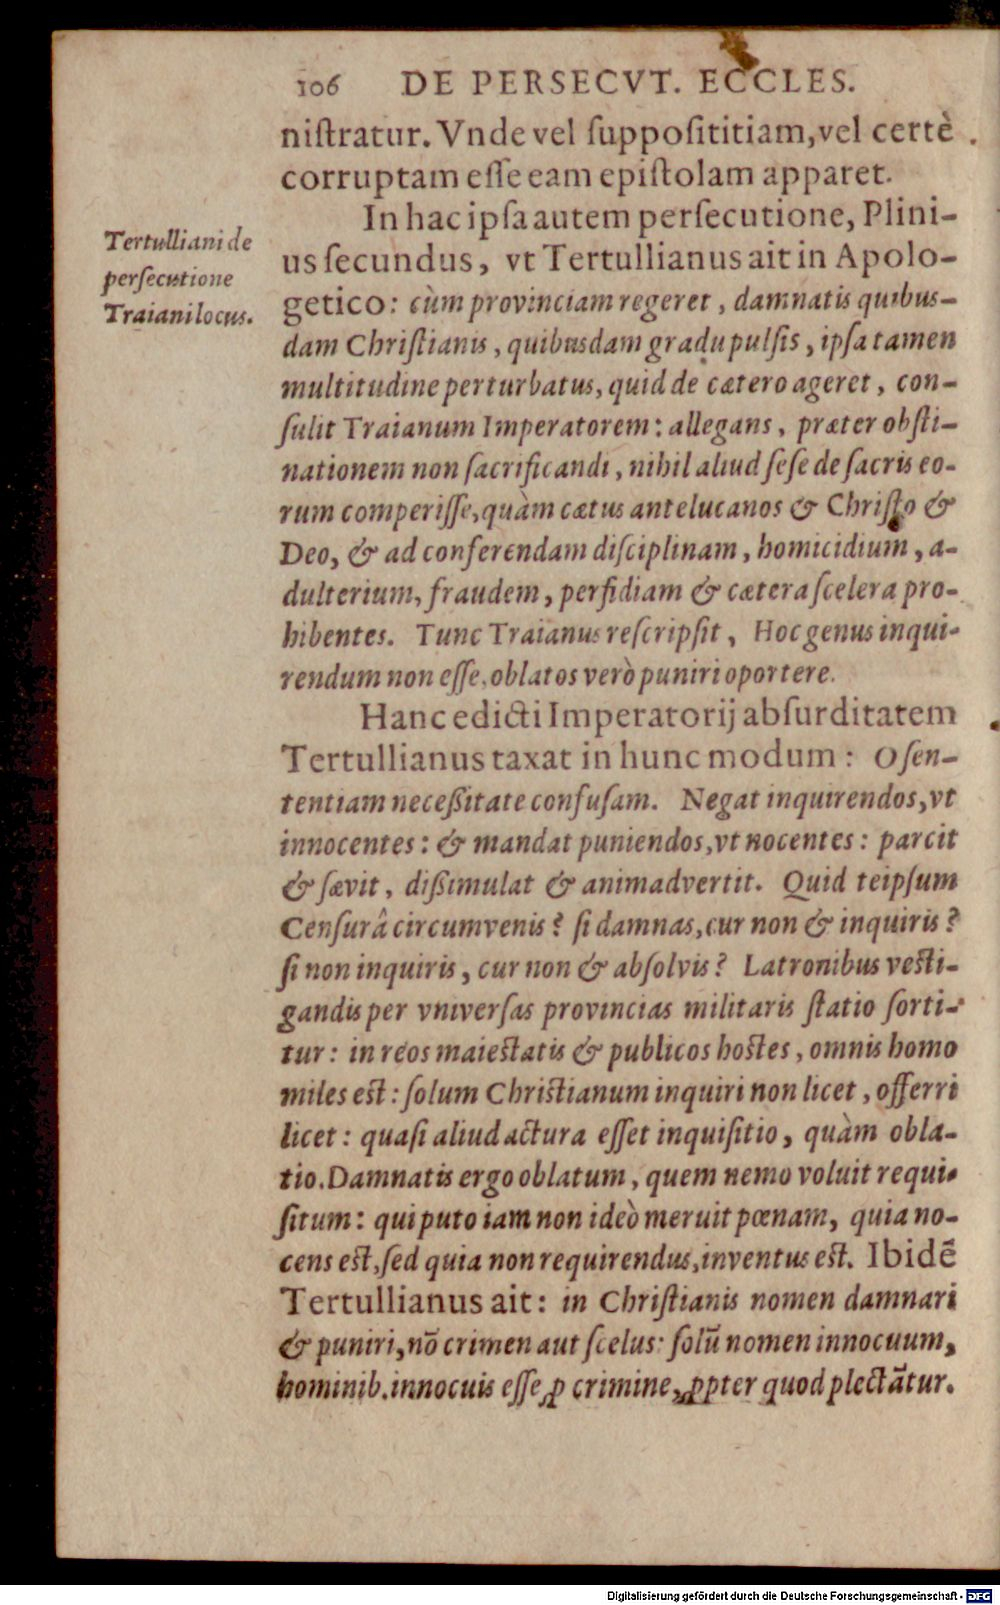 106 DE PERSECVT. ECCLES.
niſtratur. Vnde vel ſuppoſititiam, vel certè
corruptam eſſe eam epiſtolam apparet.
In hac ipſa autem perſecutione, Plini-
us ſecundus, vt Tertullianus ait in Apolo-
Tertulliani de
perſecutione
Traiani locus.
getico: cùm provinciam regeret, damnatis quibus-
dam Chriſtianis, quibusdam gradu pulſis, ipſa tamen
multitudine perturbatus, quid de cætero ageret, con-
ſulit Traianum Imperatorem: allegans, præter obſti-
nationem non ſacrificandi, nihil aliud ſeſe de ſacris eo-
rum comperiſſe, quàm cætus antelucanos & Chriſto &
Deo, & ad conferendam diſciplinam, homicidium, a-
dulterium, fraudem, perfidiam & cætera ſcelera pro-
hibentes. Tunc Traianus reſcripſit, Hoc genus inqui-
rendum non eſſe, oblatos verò puniri oportere.
Hanc edicti Imperatorij abſurditatem
Tertullianus taxat in hunc modum: O ſen-
tentiam neceßitate confuſam. Negat inquirendos, vt
innocentes: & mandat puniendos, vt nocentes: parcit
& ſævit, dißimulat & animadvertit. Quid teipſum
Cenſurâ circumvenis? ſi damnas, cur non & inquiris?
ſi non inquiris, cur non & abſolvis? Latronibus veſti-
gandis per vniverſas provincias militaris ſtatio ſorti-
tur: in reos maieſtatis & publicos hoſtes, omnis homo
miles eſt: ſolum Chriſtianum inquiri non licet, offerri
licet: quaſi aliud actura eſſet inquiſitio, quàm obla-
tio. Damnatis ergo oblatum, quem nemo voluit requi-
ſitum: qui puto iam non ideò meruit pœnam, quia no-
cens eſt, ſed quia non requirendus, inventus eſt. Ibidē
Tertullianus ait: in Chriſtianis nomen damnari
& puniri, nō crimen aut ſcelus: ſolū nomen innocuum,
hominib. innocuis eſſe ꝓ crimine, ꝓpter quod plectātur.
Digitalisierung gefördert durch die Deutsche Forschungsgemeinschaft - DFG